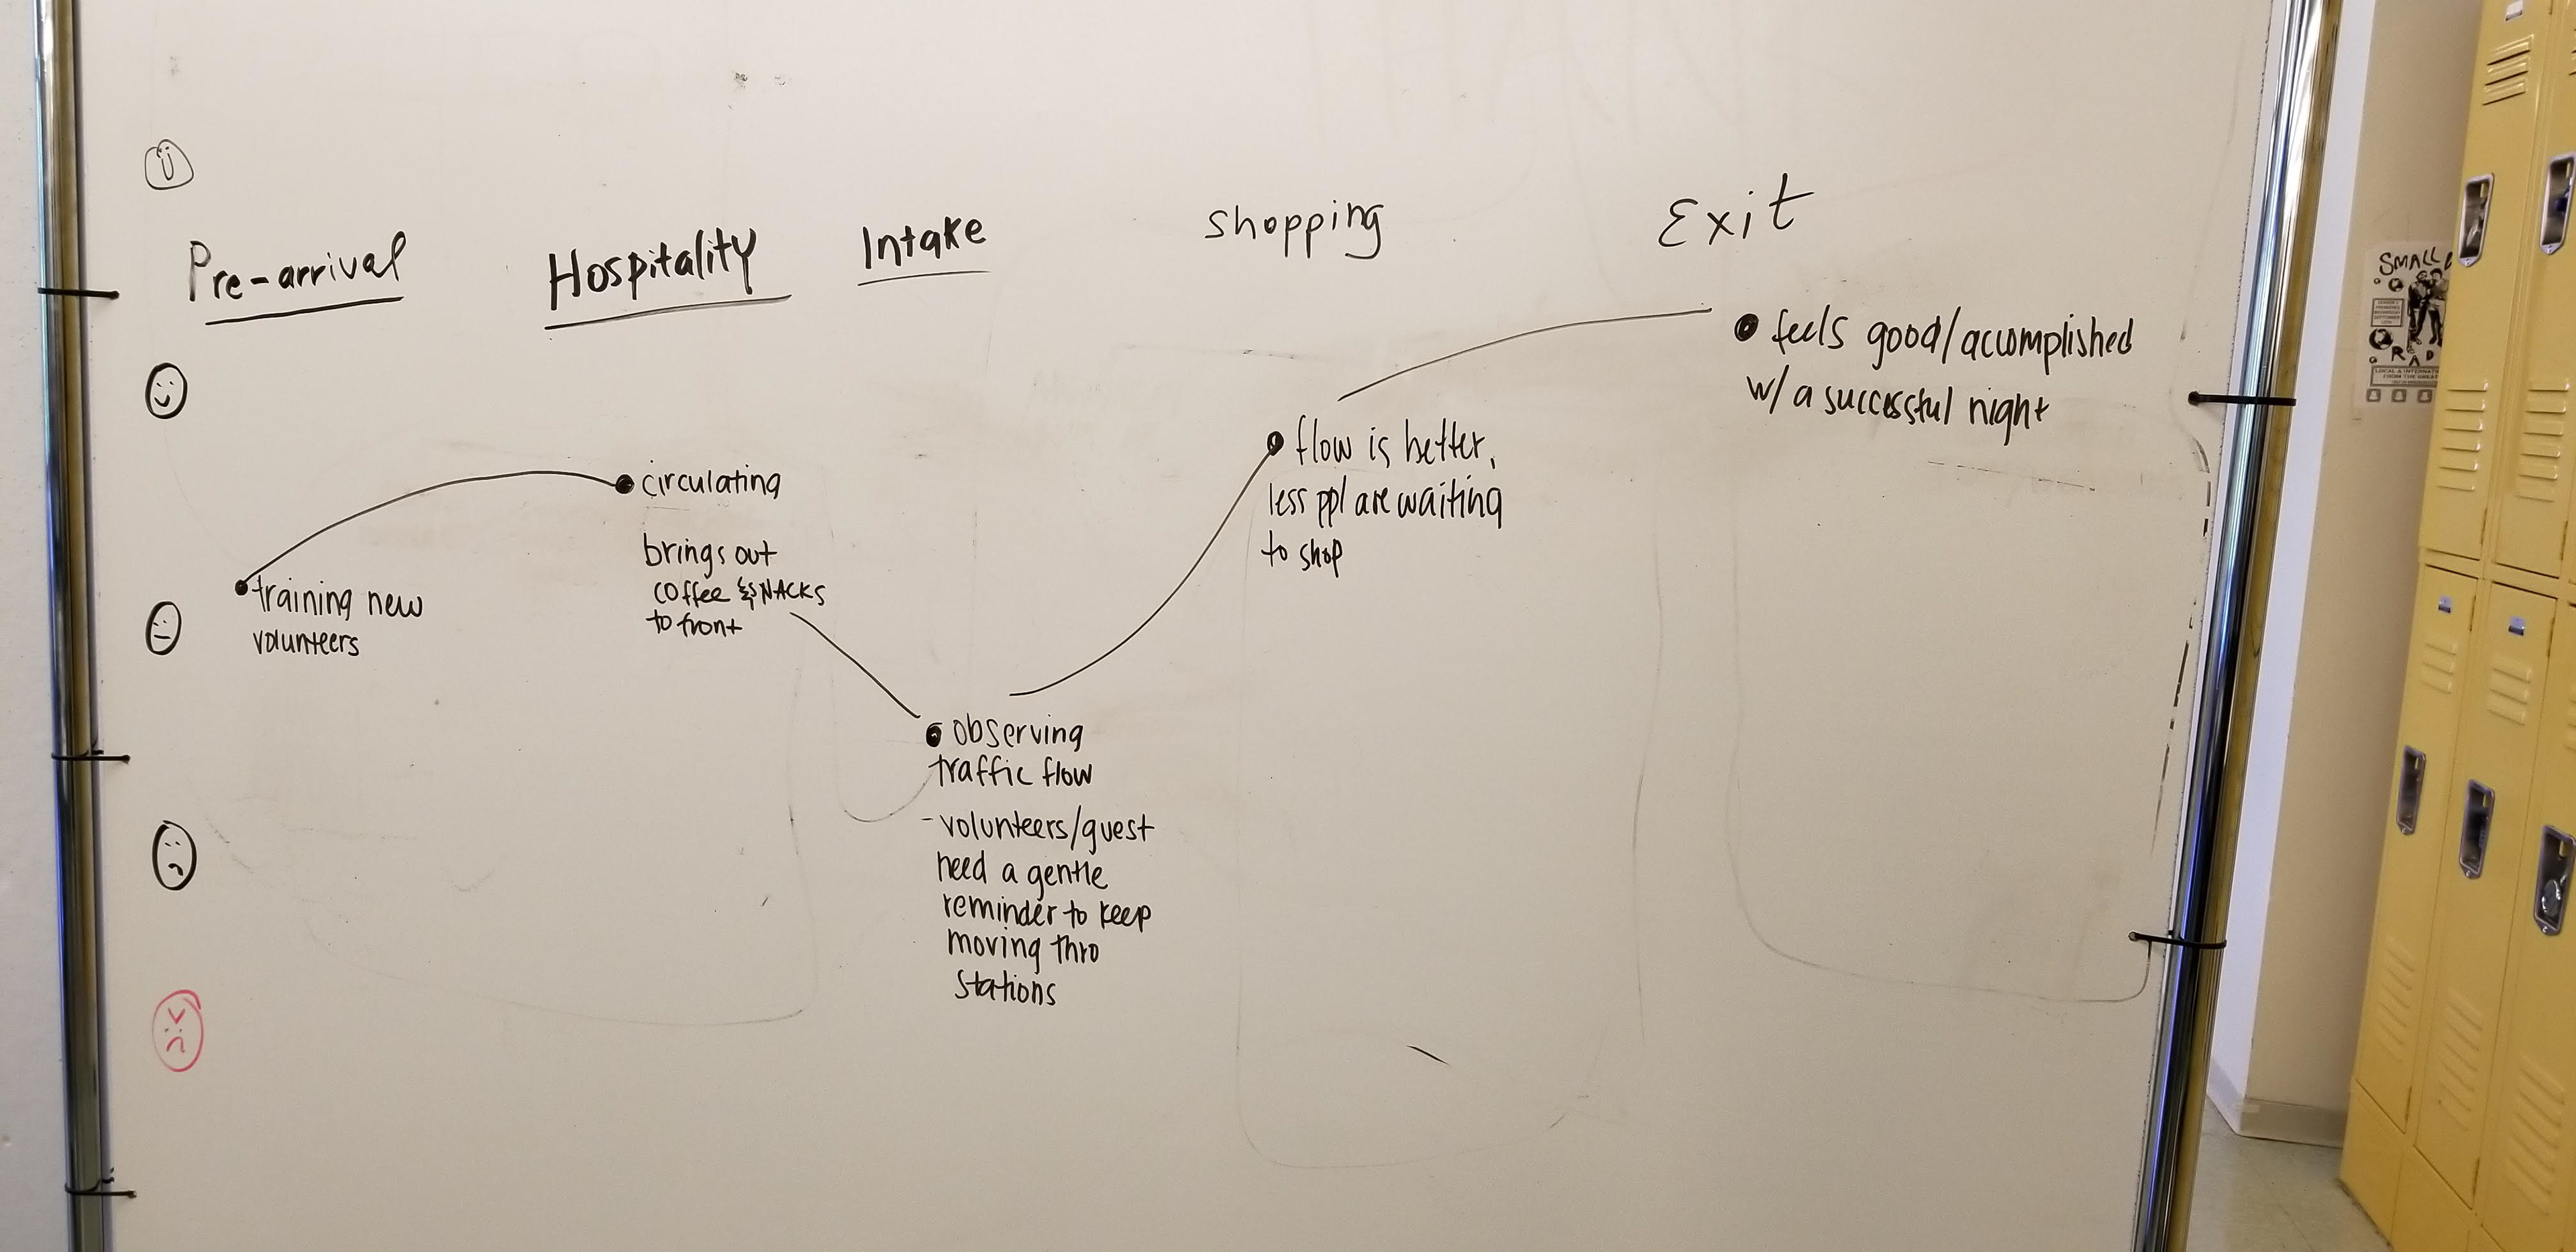 Pre-arrival
Hospitality
Intake
Shopping
Exit
training new
volunteers
circulating
brings out
coffee & SNACKS
to front
observing
traffic flow
- volunteers/guest
need a gentle
reminder to keep
moving thro
stations
flow is better,
less ppl are waiting
to shop
feels good/accomplished
w/ a successful night
SMALL
RAD